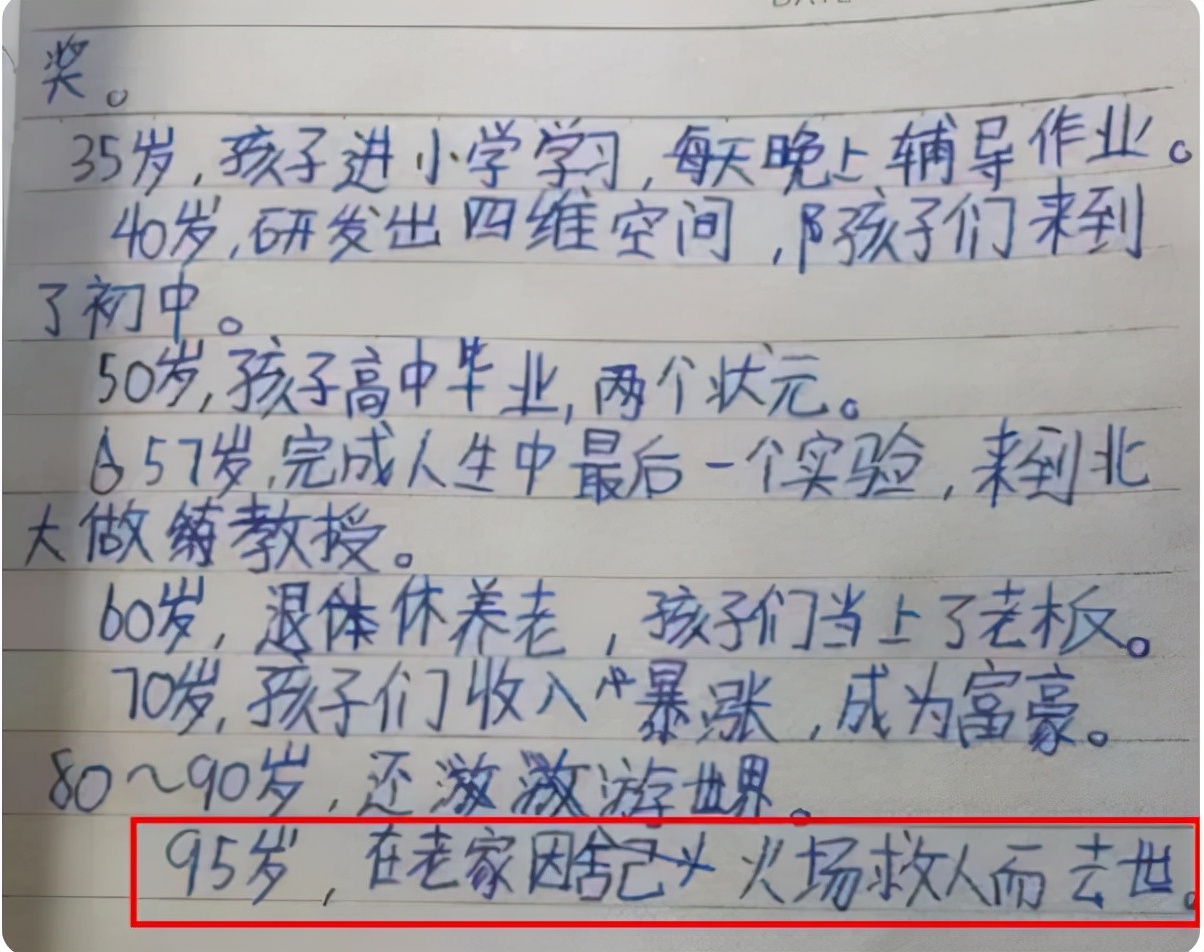 奖。
35岁，孩子进小学学习，每天晚上辅导作业。
40岁，研发出四维空间，孩子们来到
了初中。
50岁，孩子高中毕业，两个状元。
57岁，完成人生中最后一个实验，来到北
大做教授。
60岁，退休养老，孩子们当上了老板。
70岁，孩子们收入暴涨，成为富豪。
80～90岁，还游世界。
95岁，在老家因舍己火场救人而去世。